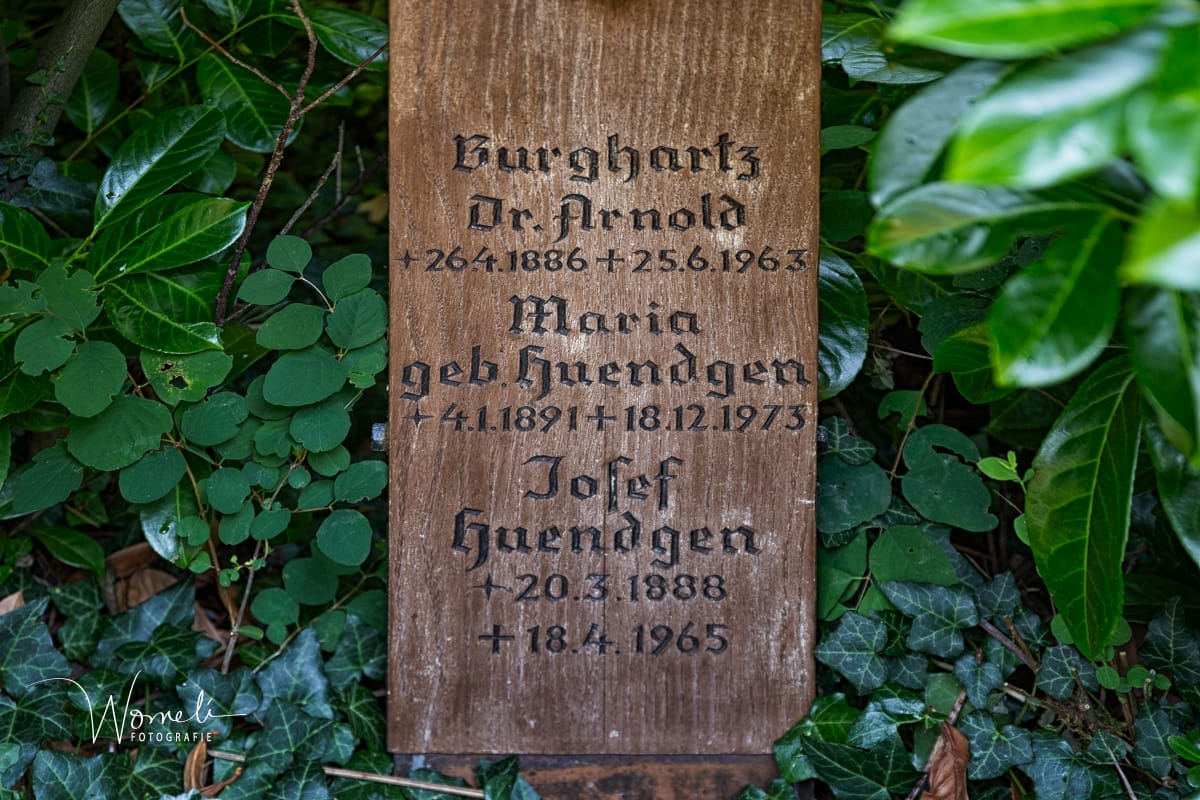 Burghartz
Dr. Arnold
+26.4.1886+25.6.1963
Maria
geb. Huendgen
+4.1.1891+18.12.1973
Josef
Huendgen
+20.3.1888
+18.4.1965
Womeli
FOTOGRAFIE